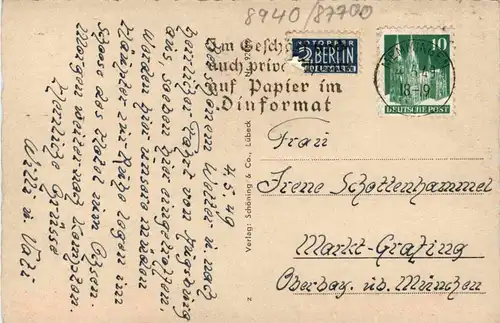 8940/87700
Im Geschä
auch priv
auf Papier im
Dinformat
NOTOPFER
2 BERLIN
STEUERMARKE
10
18-19
DEUTSCHE POST
4.5.49
Bei schönem Wetter u. nach
herrlicher Fahrt von Augsburg
aus, soeben hier eingetroffen.
Werden hier unsere müden
Häupter zur Ruhe legen im
Hotel zum Ochsen.
Morgen weiter nach Kempten.
Herzliche Grüsse
Willi u. Vati
Verlag: Schöning & Co., Lübeck
Z
Frau
Irene Schottenhammel
Markt-Grafing
Oberbay. üb. München